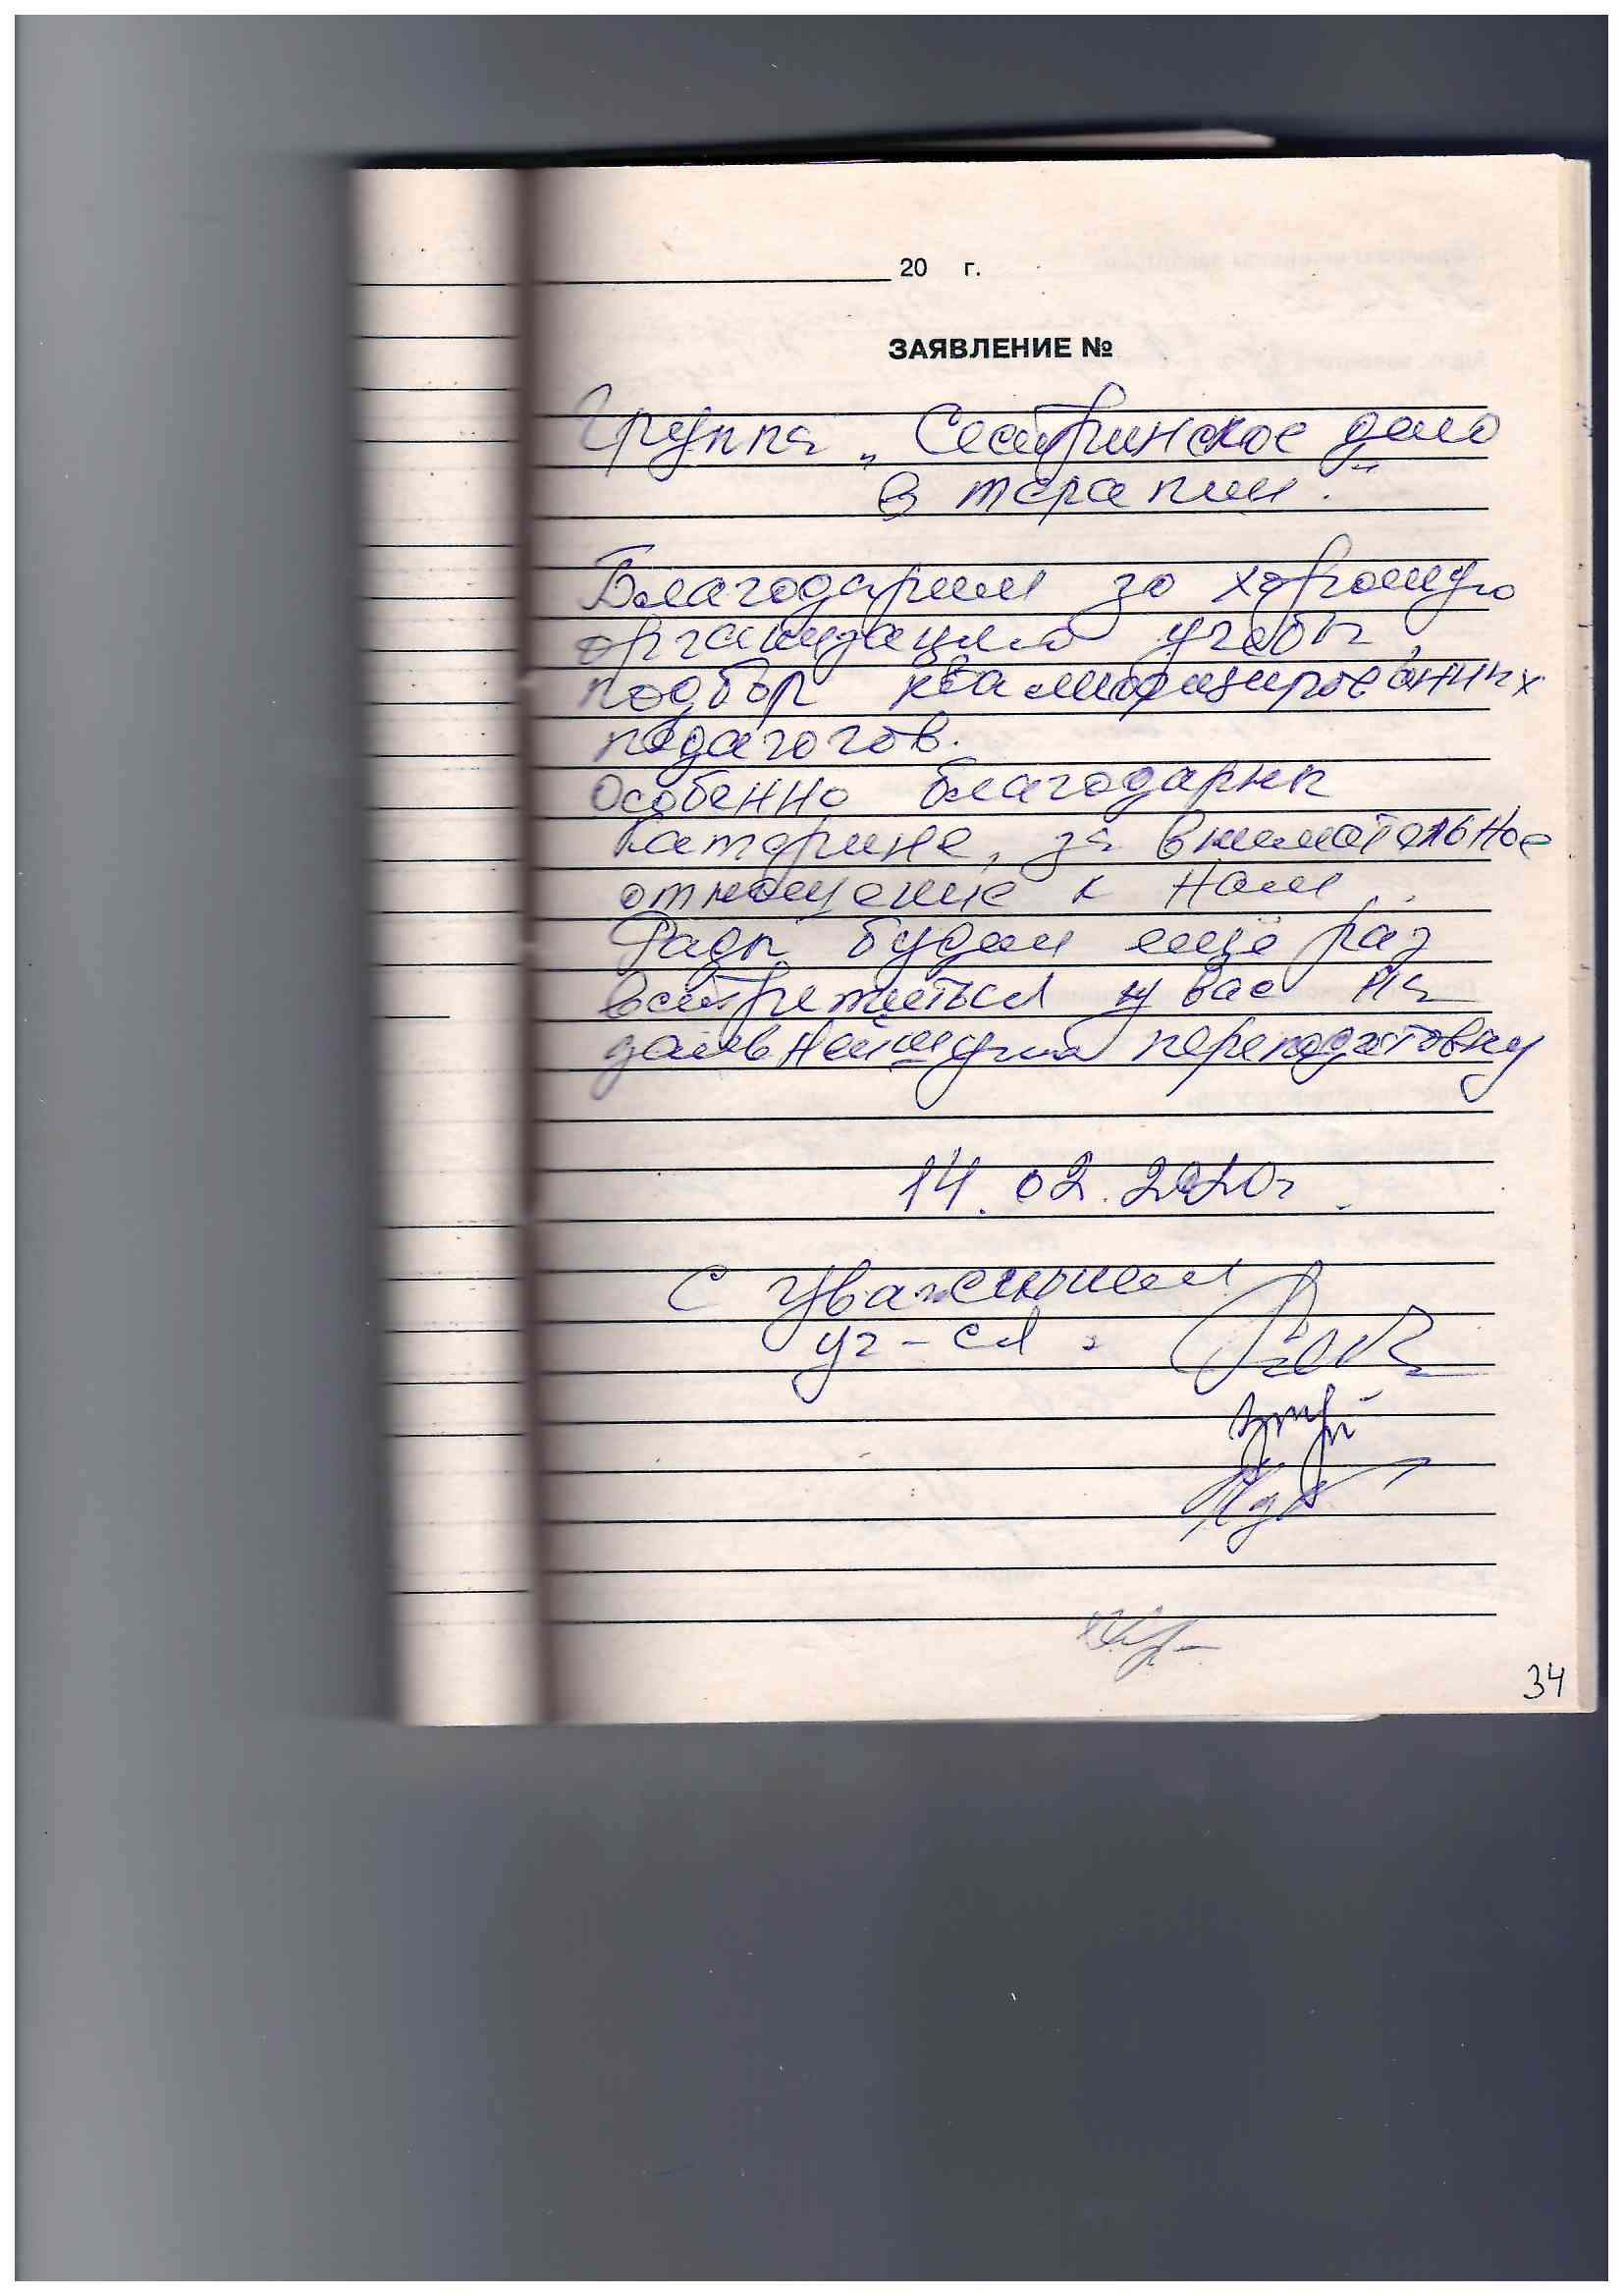 20 г.
ЗАЯВЛЕНИЕ №
Группа „Сестринское дело
в терапии."
Благодарим за хорошую
организацию учебы,
подбор квалифицированных
педагогов.
Особенно благодарны
Катерине, за внимательное
отношение к нам.
Рады будем ещё раз
встретиться у вас на
дальнейшую переподготовку
14.02.2020г.
С уважением
уч-ся:
34